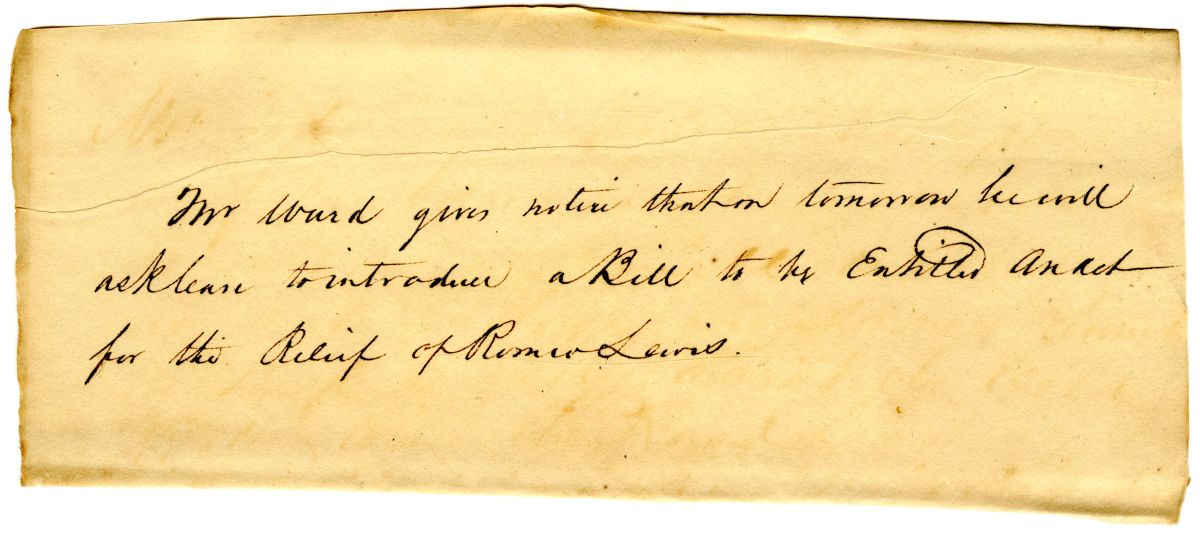 Mr Ward gives notice that on tomorrow he will
ask leave to introduce a Bill to be Entitled An act
for the Relief of Romeo Lewis.